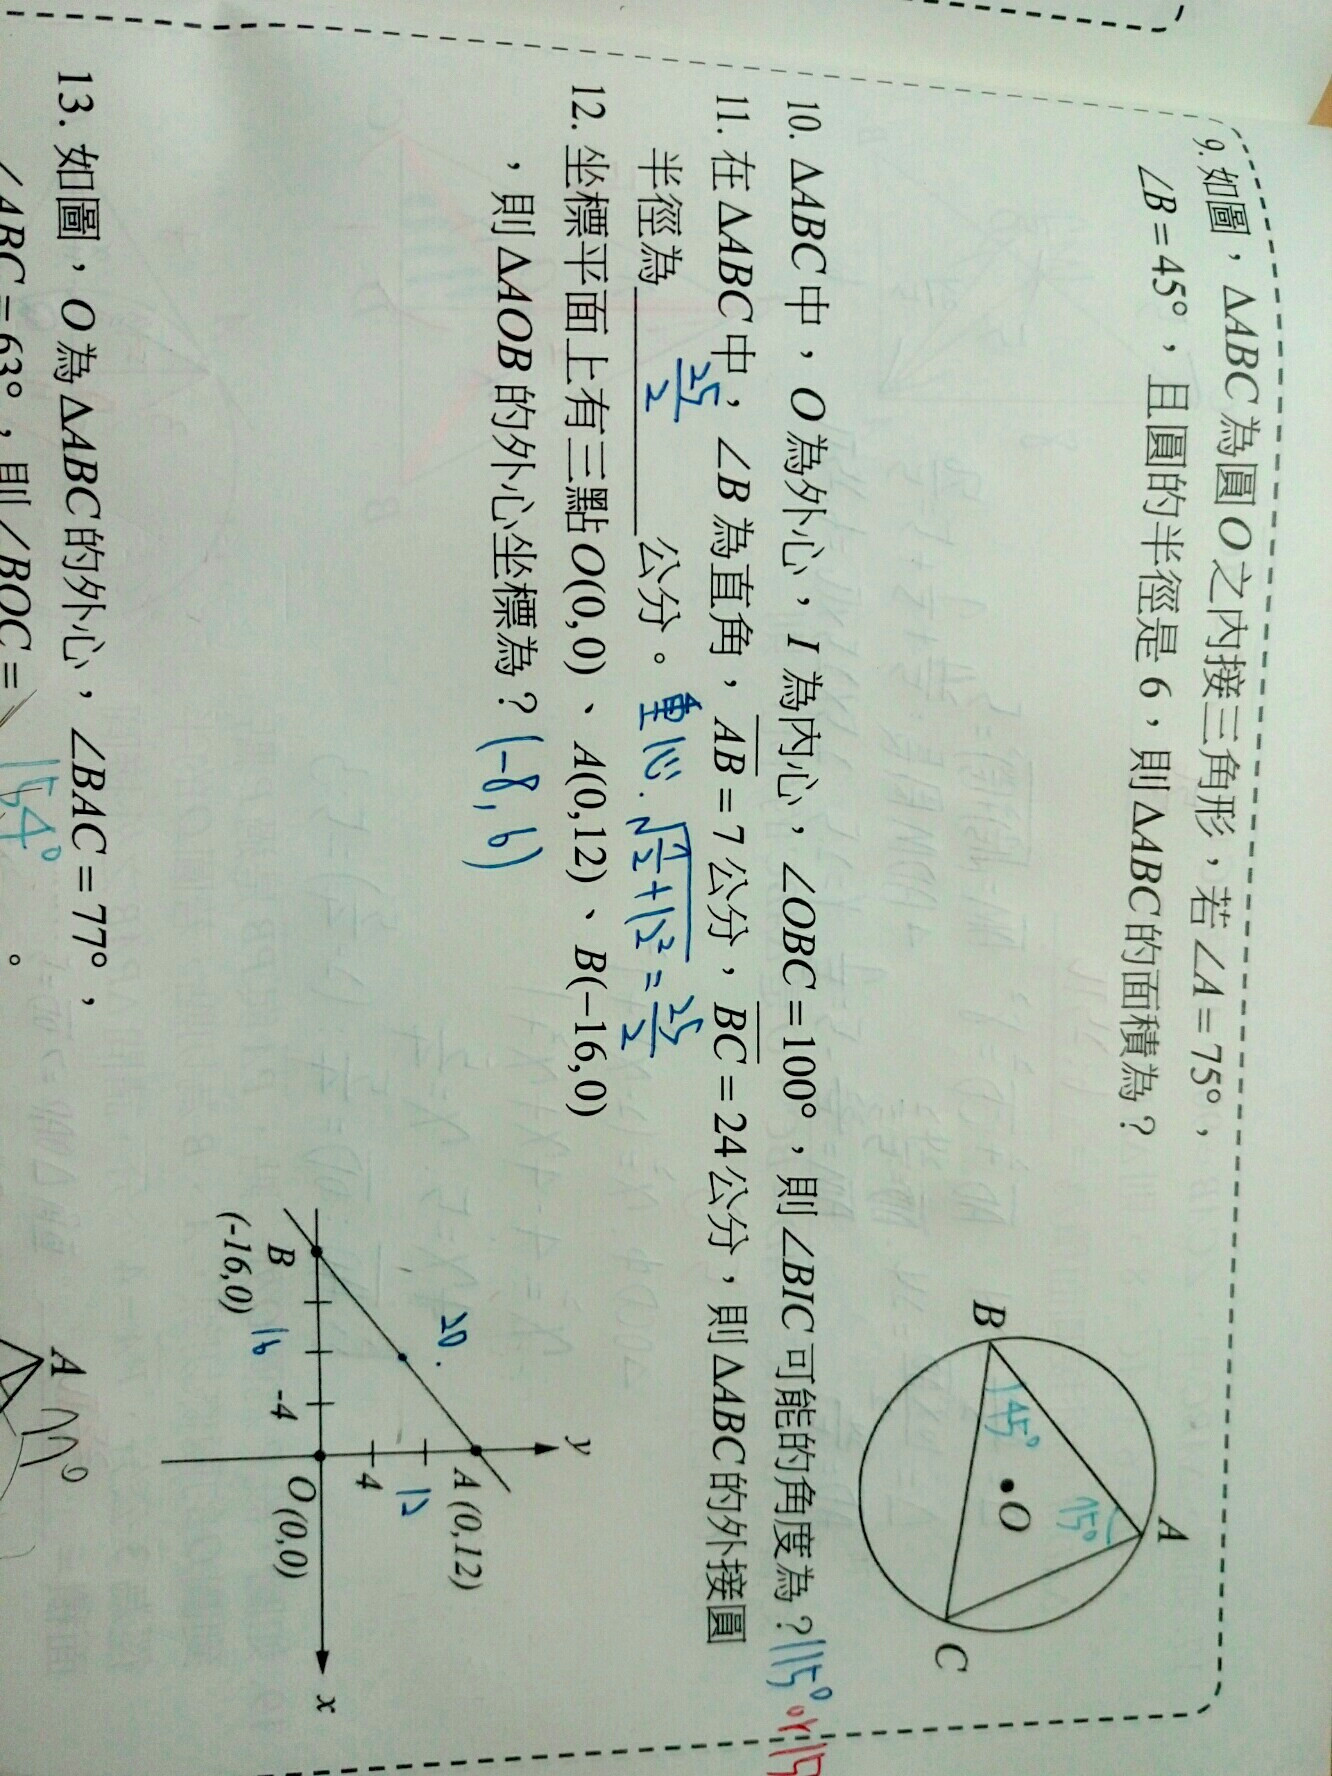 9. 如圖，ΔABC 為圓 O 之內接三角形，若∠A=75°，
∠B=45°，且圓的半徑是 6，則ΔABC 的面積為？
A
B
C
O
45°
75°
10. ΔABC 中，O 為外心，I 為內心，∠OBC=100°，則∠BIC 可能的角度為？115° or
11. 在ΔABC 中，∠B 為直角，AB=7 公分，BC=24 公分，則ΔABC 的外接圓
半徑為 25/2 公分。
12. 坐標平面上有三點 O(0,0)、A(0,12)、B(−16,0)
，則ΔAOB 的外心坐標為？(-8, 6)
y
A (0,12)
12
20.
4
B
(-16,0)
16
-4
O(0,0)
x
13. 如圖，O 為ΔABC 的外心，∠BAC=77°，
∠ABC=63°，則∠BOC= 154° 。
A
77°